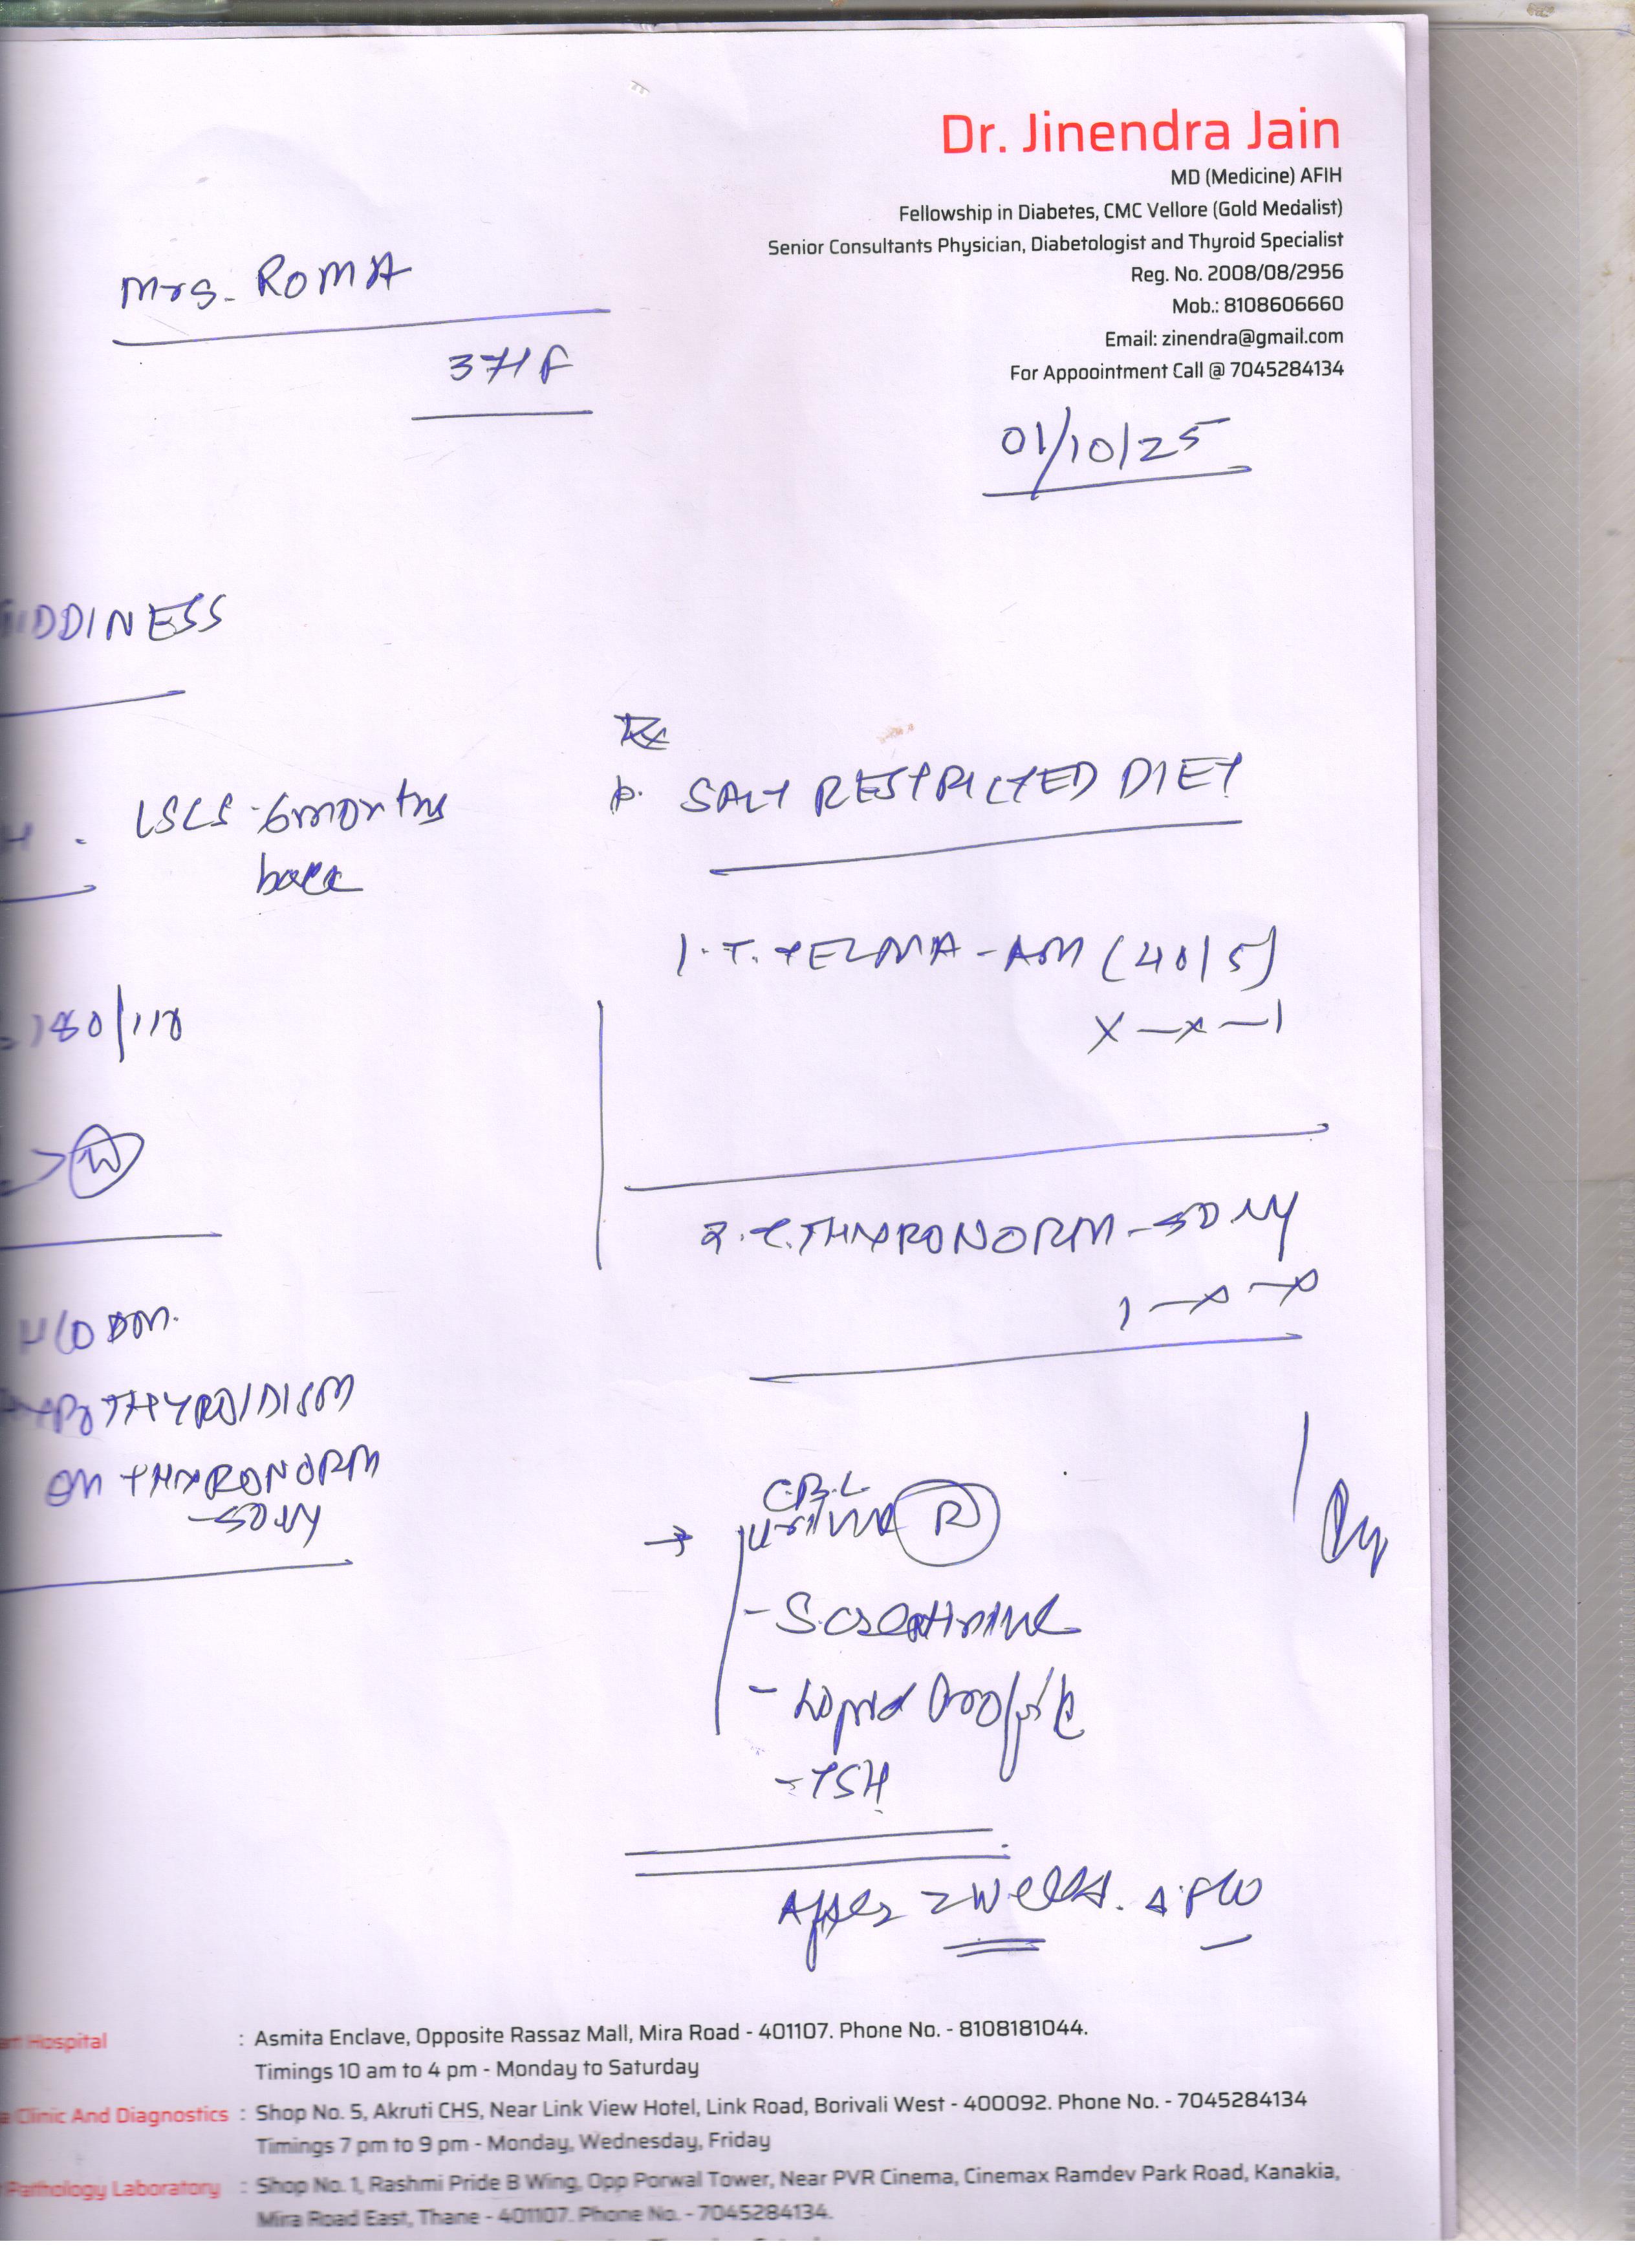 Dr. Jinendra Jain
MD (Medicine) AFIH
Fellowship in Diabetes, CMC Vellore (Gold Medalist)
Senior Consultants Physician, Diabetologist and Thyroid Specialist
Reg. No. 2008/08/2956
Mob.: 8108606660
Email: zinendra@gmail.com
For Appoointment Call @ 7045284134
Mrs. ROMA
37/F
01/10/25
GIDDINESS
LSCS - 6 months
back
180/110
H/O DM.
HYPOTHYROIDISM
on THYRONORM
-50
Rx
SALT RESTRICTED DIET
1. T. TELMA-AM (40/5)
x - x - 1
2. T. THYRONORM - 50
1 - x - x
→ Urine R
- S. creatinine
- Lipid Profile
- TSH
After 2 weeks.
Hospital : Asmita Enclave, Opposite Rassaz Mall, Mira Road - 401107. Phone No. - 8108181044.
Timings 10 am to 4 pm - Monday to Saturday
Clinic And Diagnostics : Shop No. 5, Akruti CHS, Near Link View Hotel, Link Road, Borivali West - 400092. Phone No. - 7045284134
Timings 7 pm to 9 pm - Monday, Wednesday, Friday
Pathology Laboratory : Shop No. 1, Rashmi Pride B Wing, Opp Porwal Tower, Near PVR Cinema, Cinemax Ramdev Park Road, Kanakia,
Mira Road East, Thane - 401107. Phone No. - 7045284134.